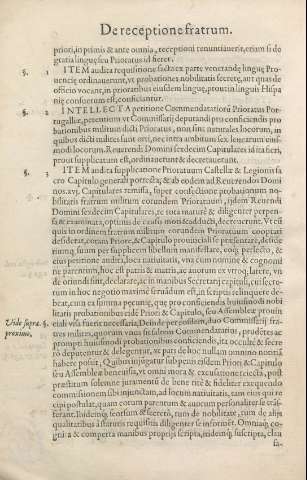 De receptione fratrum.
priori, in primis & ante omnia, receptioni renuntiauerit, etiam si de
gratia linguæ seu Prioratus id fieret.
§. 1 ITEM audita requisitione facta ex parte venerandę linguę Pro
uenciæ ordinauerunt, vt probationes nobilitatis secrete, aut quas de
officio vocant, in prioratibus eiusdem linguę, prout in linguis Hispa
niæ consuetum est, conficiantur.
§. 2 INTELLECTA petitione Commendatatiorū Prioratus Por-
tugalliæ, petentium vt Commissarij deputandi pro conficiendis pro
bationibus militum dicti Prioratus, non sint naturales locorum, in
quibus dicti milites sunt orti, nec intra ambitum sex leucarum eius-
modi locorum. Reuerendi Domini sexdecim Capitulares id ita fieri,
prout supplicatum est, ordinauerunt & decreuerunt.
§. 3 ITEM audita supplicatione Prioratuum Castellæ & Legionis sa
cro Capitulo generali porrecta, & ab eodem ad Reuerendos Domi
nos .xvj. Capitulares remissa, super confectione probationum no-
bilitatis fratrum militum eorundem Prioratuum, ijdem Reuerendi
Domini sexdecim Capitulares, re tota mature & diligenter perpen-
sa & examinata, optimis de causis moti & adducti, decreuerunt. Vt si
quis in ordinem fratrum militum eorundem Prioratuum cooptari
desiderat, coram Priore, & Capitulo prouinciali se præsentet, deside
riumq; suum per supplicem libellum manifestet, eoq; perlecto, &
eius petitione audita, loca natiuitatis, vna cum nomine & cognomi
ne parentum, hoc est patris & matris, ac auorum ex vtroq. latere, vn
de oriundi sint, declarate, ac in manibus Secretarij capituli, consecto-
rum in hoc negotio maxime fraudum est, in scriptis relinquere de-
beat, cum ea summa pecuniæ, quę pro conficiendis huiusmodi nobi
litatis probationibus eidē Priori & Capitulo, seu Assemblæę prouin
Vide supra. §. ciali visa fuerit necessaria. Deinde per eosdem, duo Commissarij fra-
proximo. tres milites, quorum vnus sit saltem Commendatarius, prudētes ac
prompti huiusmodi probationibus conficiendis, ita occultè & secre
tò deputentur & delegentur, vt pars de hoc nullam omnino notitiā
habere possit, Quibus iniungatur sub pœnis eisdem Priori & Capitulo
seu Assemblæę beneuisis, vt omni mora & excusatione reiecta, post
præstitum solemne iuramentū de bene ritè & fideliter exequendo
commissionem sibi iniunctam, ad locum natiuitatis, tam eius qui re
cipi postulat, quam eorum parentum & auorum personaliter se trās-
ferant. Ibidemq; seorsum & secretò, tum de nobilitate, tum de alijs
qualitatibus à statutis requisitis diligenter se informēt. Omniaq; co-
gnita & comperta manibus proprijs scripta, itidemq; suscripta, clau
sa